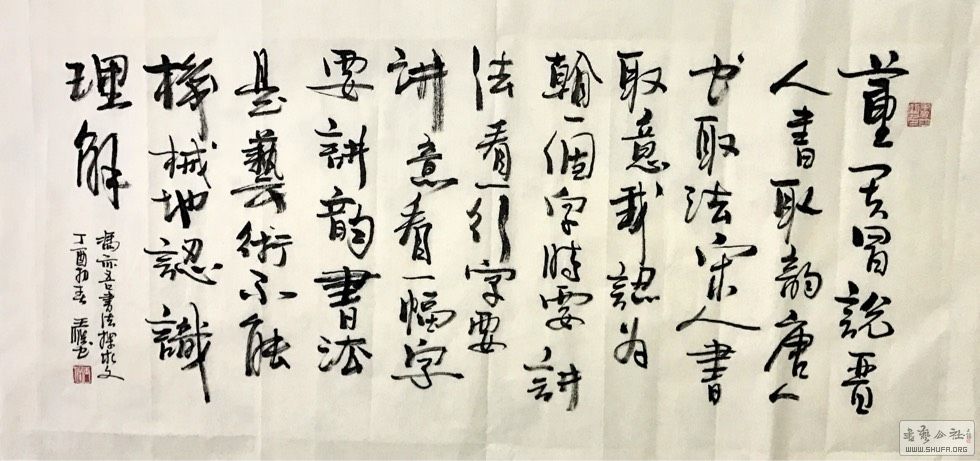 董其昌說晋
人書取韵唐人
书取法宋人書
取意我認为
一個字時要讲
法看一行字要
讲意看一幅字
要讲韵書法
是藝術不能
機械地認識
理解
馮亦吾書法探求文
丁酉初春
书艺公社
WWW.SHUFA.ORG